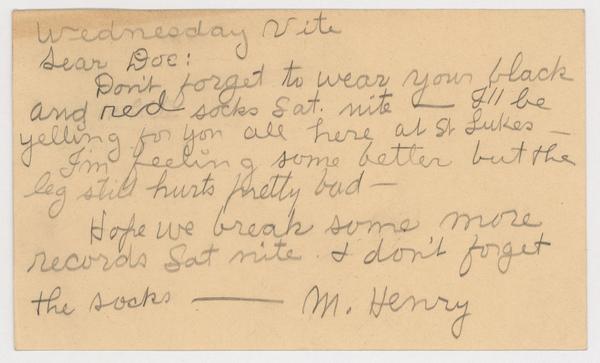 Wednesday Nite
Dear Doc:
Don't forget to wear your black
and red socks Sat. nite — I'll be
yelling for you all here at St Lukes —
I'm feeling some better but the
leg still hurts pretty bad —
Hope we break some more
records Sat nite & don't forget
the socks — M. Henry